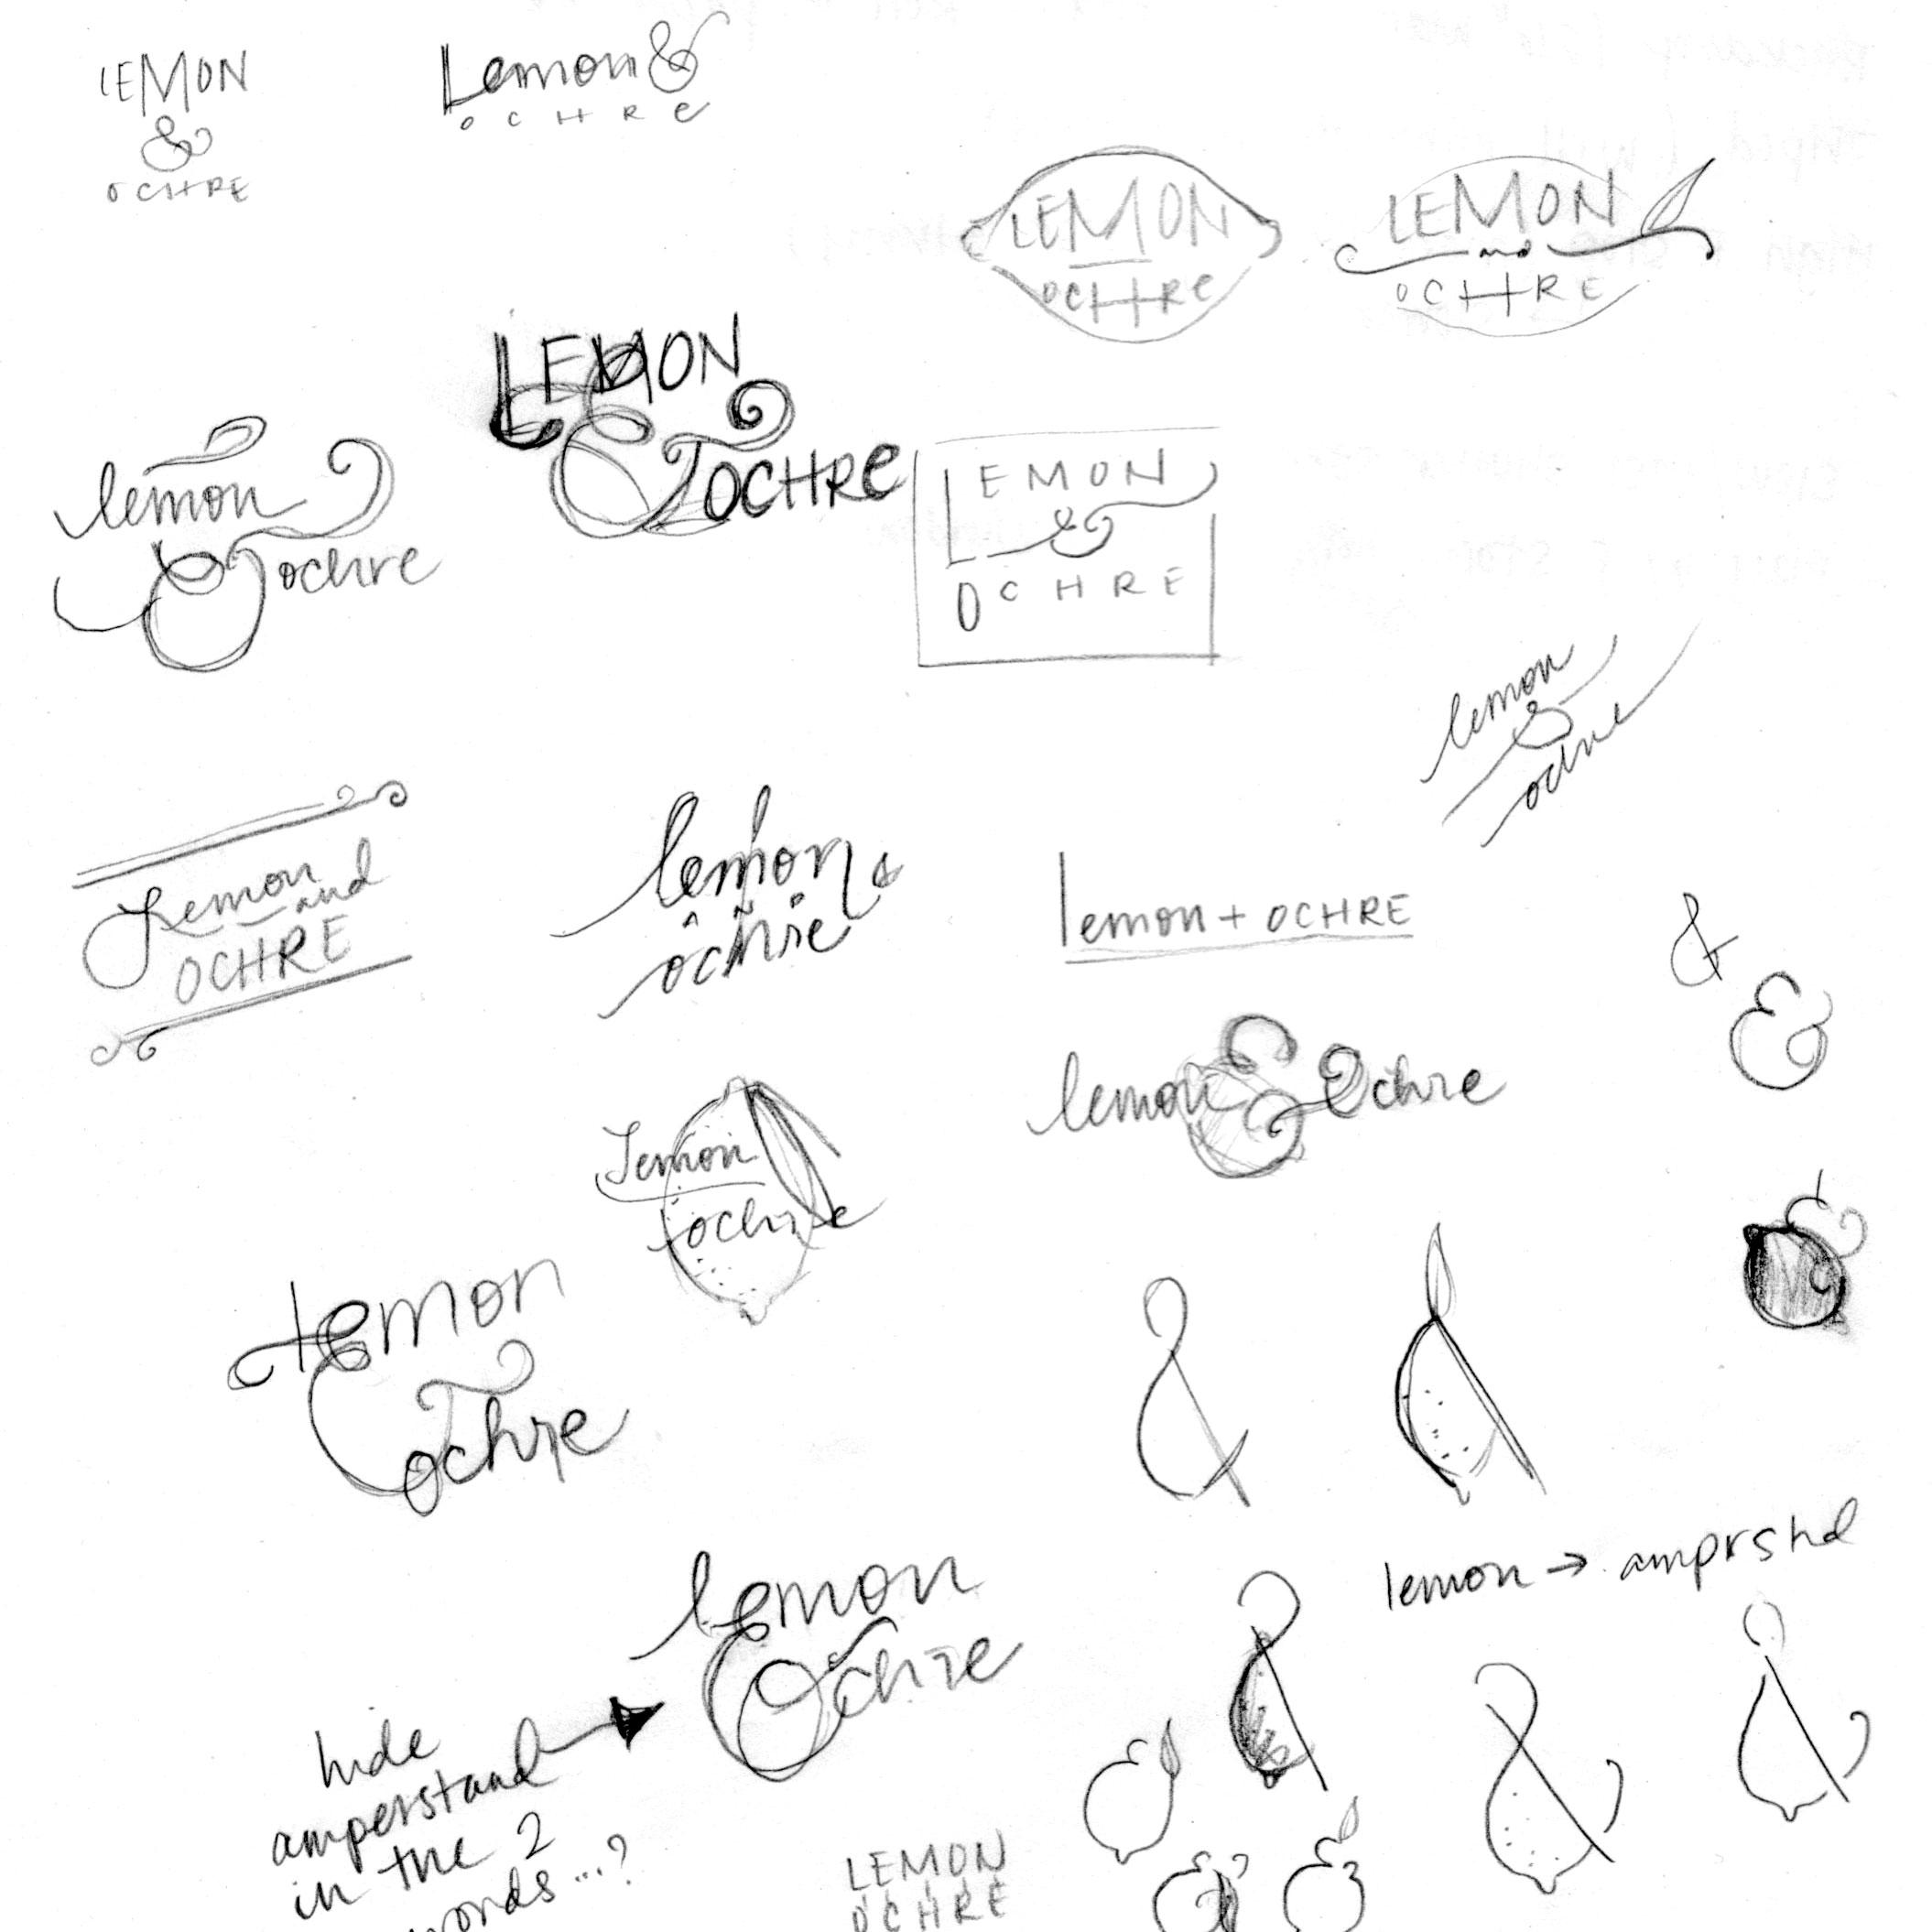 LEMON
&
OCHRE
Lemon &
OCHRe
LEMON
OCHRe
LEMON
and
OCHRE
LEMON
&
OCHRe
lemon
&
ochre
LEMON
&
OCHRE
lemon
&
ochre
Lemon
and
OCHRE
lemon &
ochre
lemon + OCHRE
&
&
lemon & Ochre
Lemon
ochre
&
lemon
&
ochre
&
lemon → amprsnd
lemon
Ochre
hide
amperstand
in the 2
words...?
&
&
&
LEMON
OCHRE